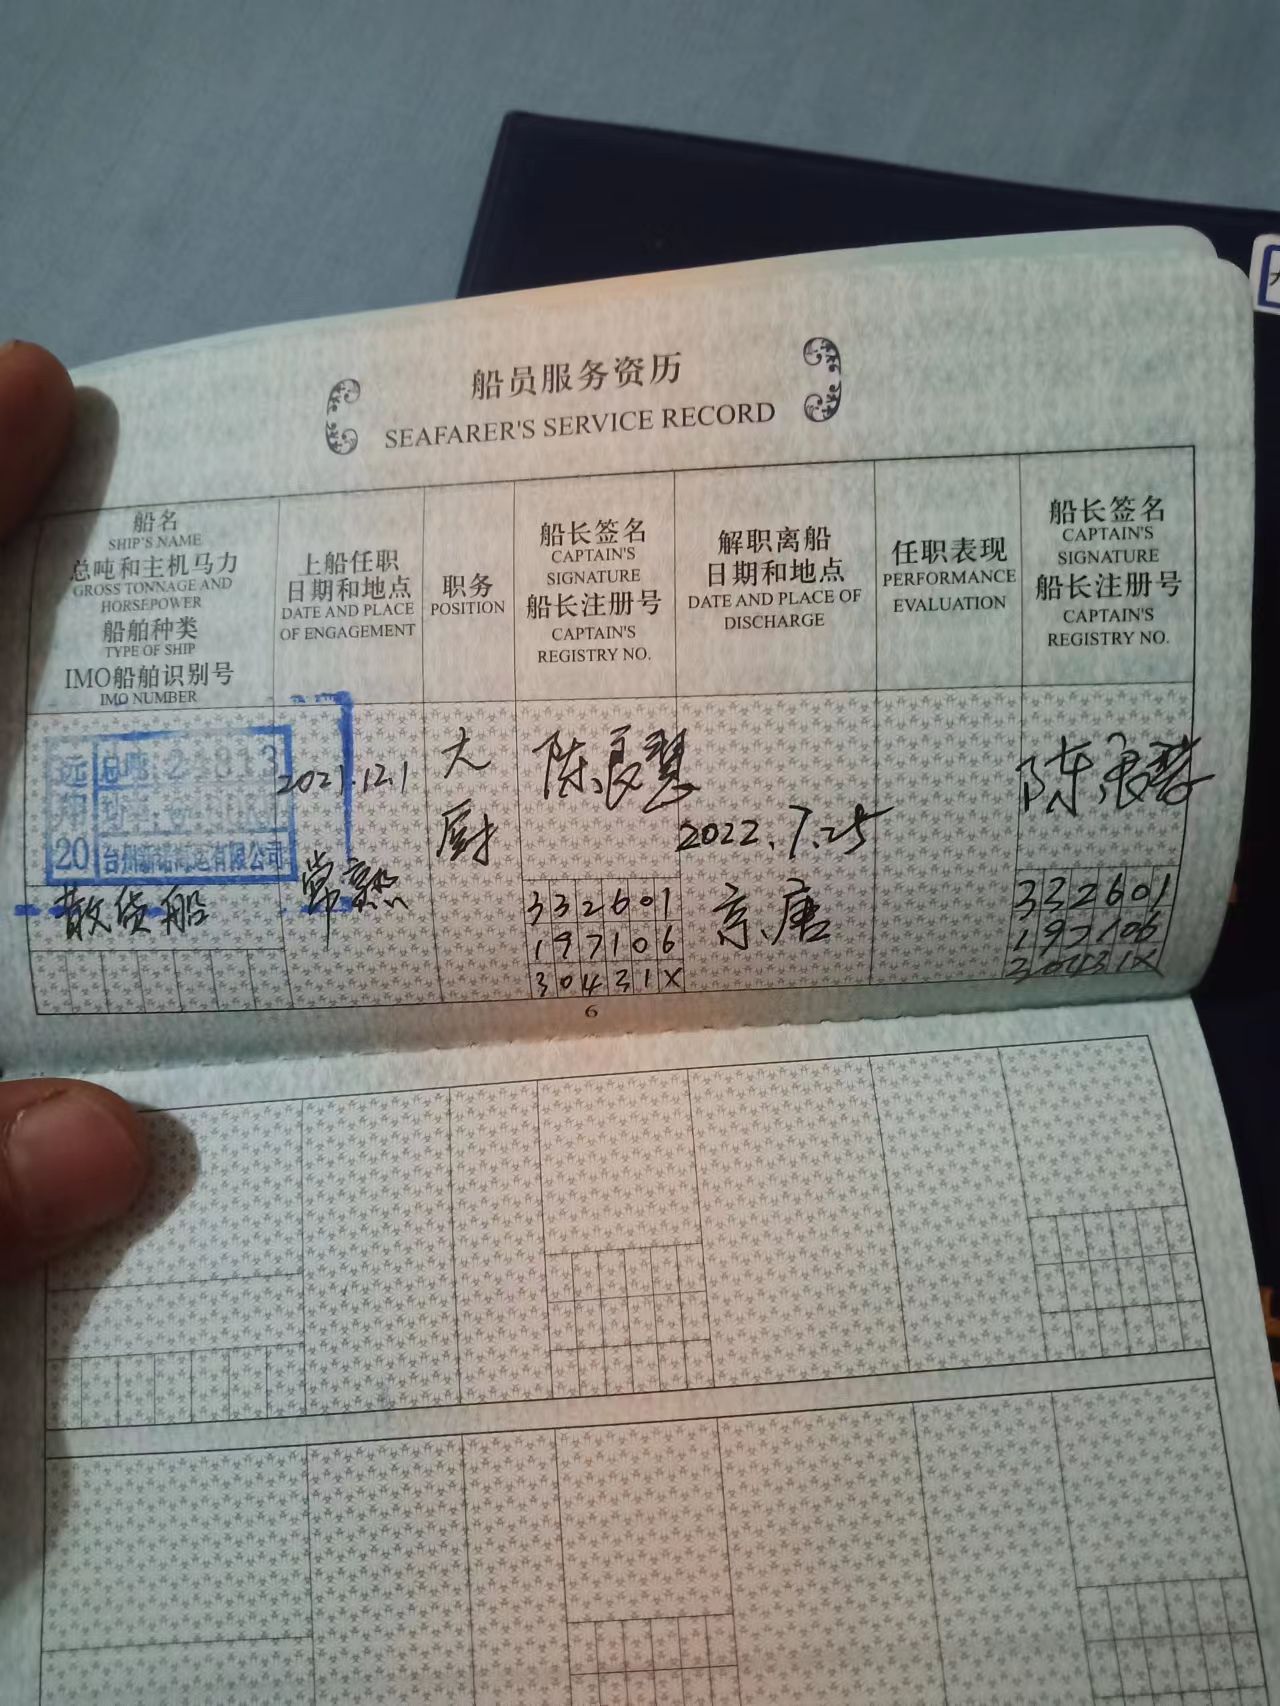 船员服务资历
SEAFARER'S SERVICE RECORD
船名
SHIP'S NAME
总吨和主机马力
GROSS TONNAGE AND
HORSEPOWER
船舶种类
TYPE OF SHIP
IMO船舶识别号
IMO NUMBER
上船任职
日期和地点
DATE AND PLACE
OF ENGAGEMENT
职务
POSITION
船长签名
CAPTAIN'S
SIGNATURE
船长注册号
CAPTAIN'S
REGISTRY NO.
解职离船
日期和地点
DATE AND PLACE OF
DISCHARGE
任职表现
PERFORMANCE
EVALUATION
船长签名
CAPTAIN'S
SIGNATURE
船长注册号
CAPTAIN'S
REGISTRY NO.
远
总吨
20
台州 海运有限公司
散货船
2021.12.1
常熟
大
厨
陈良
332601
197106
30431X
2022.7.25
京唐
陈良
332601
197106
30431X
6